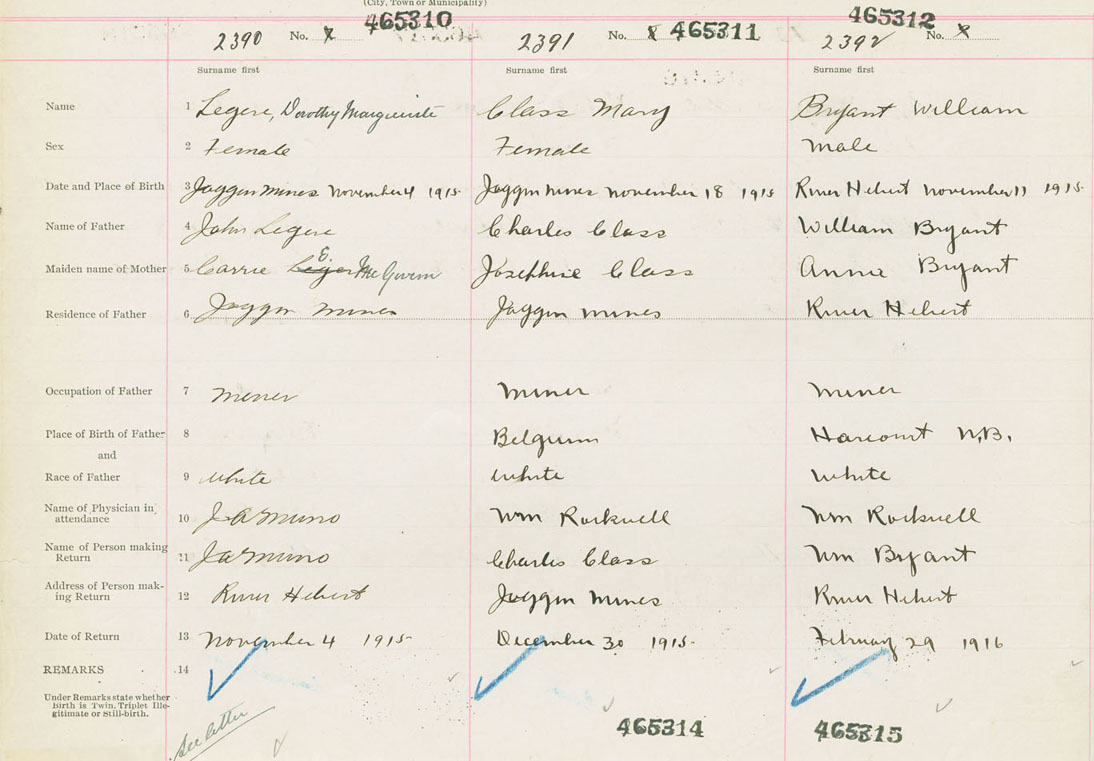 (City, Town or Municipality)
2390 No. 465310 2391 No. 465311 2392 465312 No.
Surname first Surname first Surname first
Name 1 Legere, Dorothy Marguerite Class Mary Bryant William
Sex 2 Female Female Male
Date and Place of Birth 3 Joggin Mines November 4 1915 Joggin Mines November 18 1915 River Hebert November 11 1915
Name of Father 4 John Legere Charles Class William Bryant
Maiden name of Mother 5 Carrie E. Leger Josephine Class Annie Bryant
Residence of Father 6 Joggin Mines Joggin Mines River Hebert
Occupation of Father 7 Miner Miner Miner
Place of Birth of Father 8 Belgium Harcourt N.B.
and
Race of Father 9 White White White
Name of Physician in
attendance 10 J A Munro Wm Rockwell Wm Rockwell
Name of Person making
Return 11 J A Munro Charles Class Wm Bryant
Address of Person mak-
ing Return 12 River Hebert Joggin Mines River Hebert
Date of Return 13 November 4 1915 December 30 1915 February 29 1916
REMARKS 14
Under Remarks state whether
Birth is Twin, Triplet Ille-
gitimate or Still-birth.
See letter 465314 465315